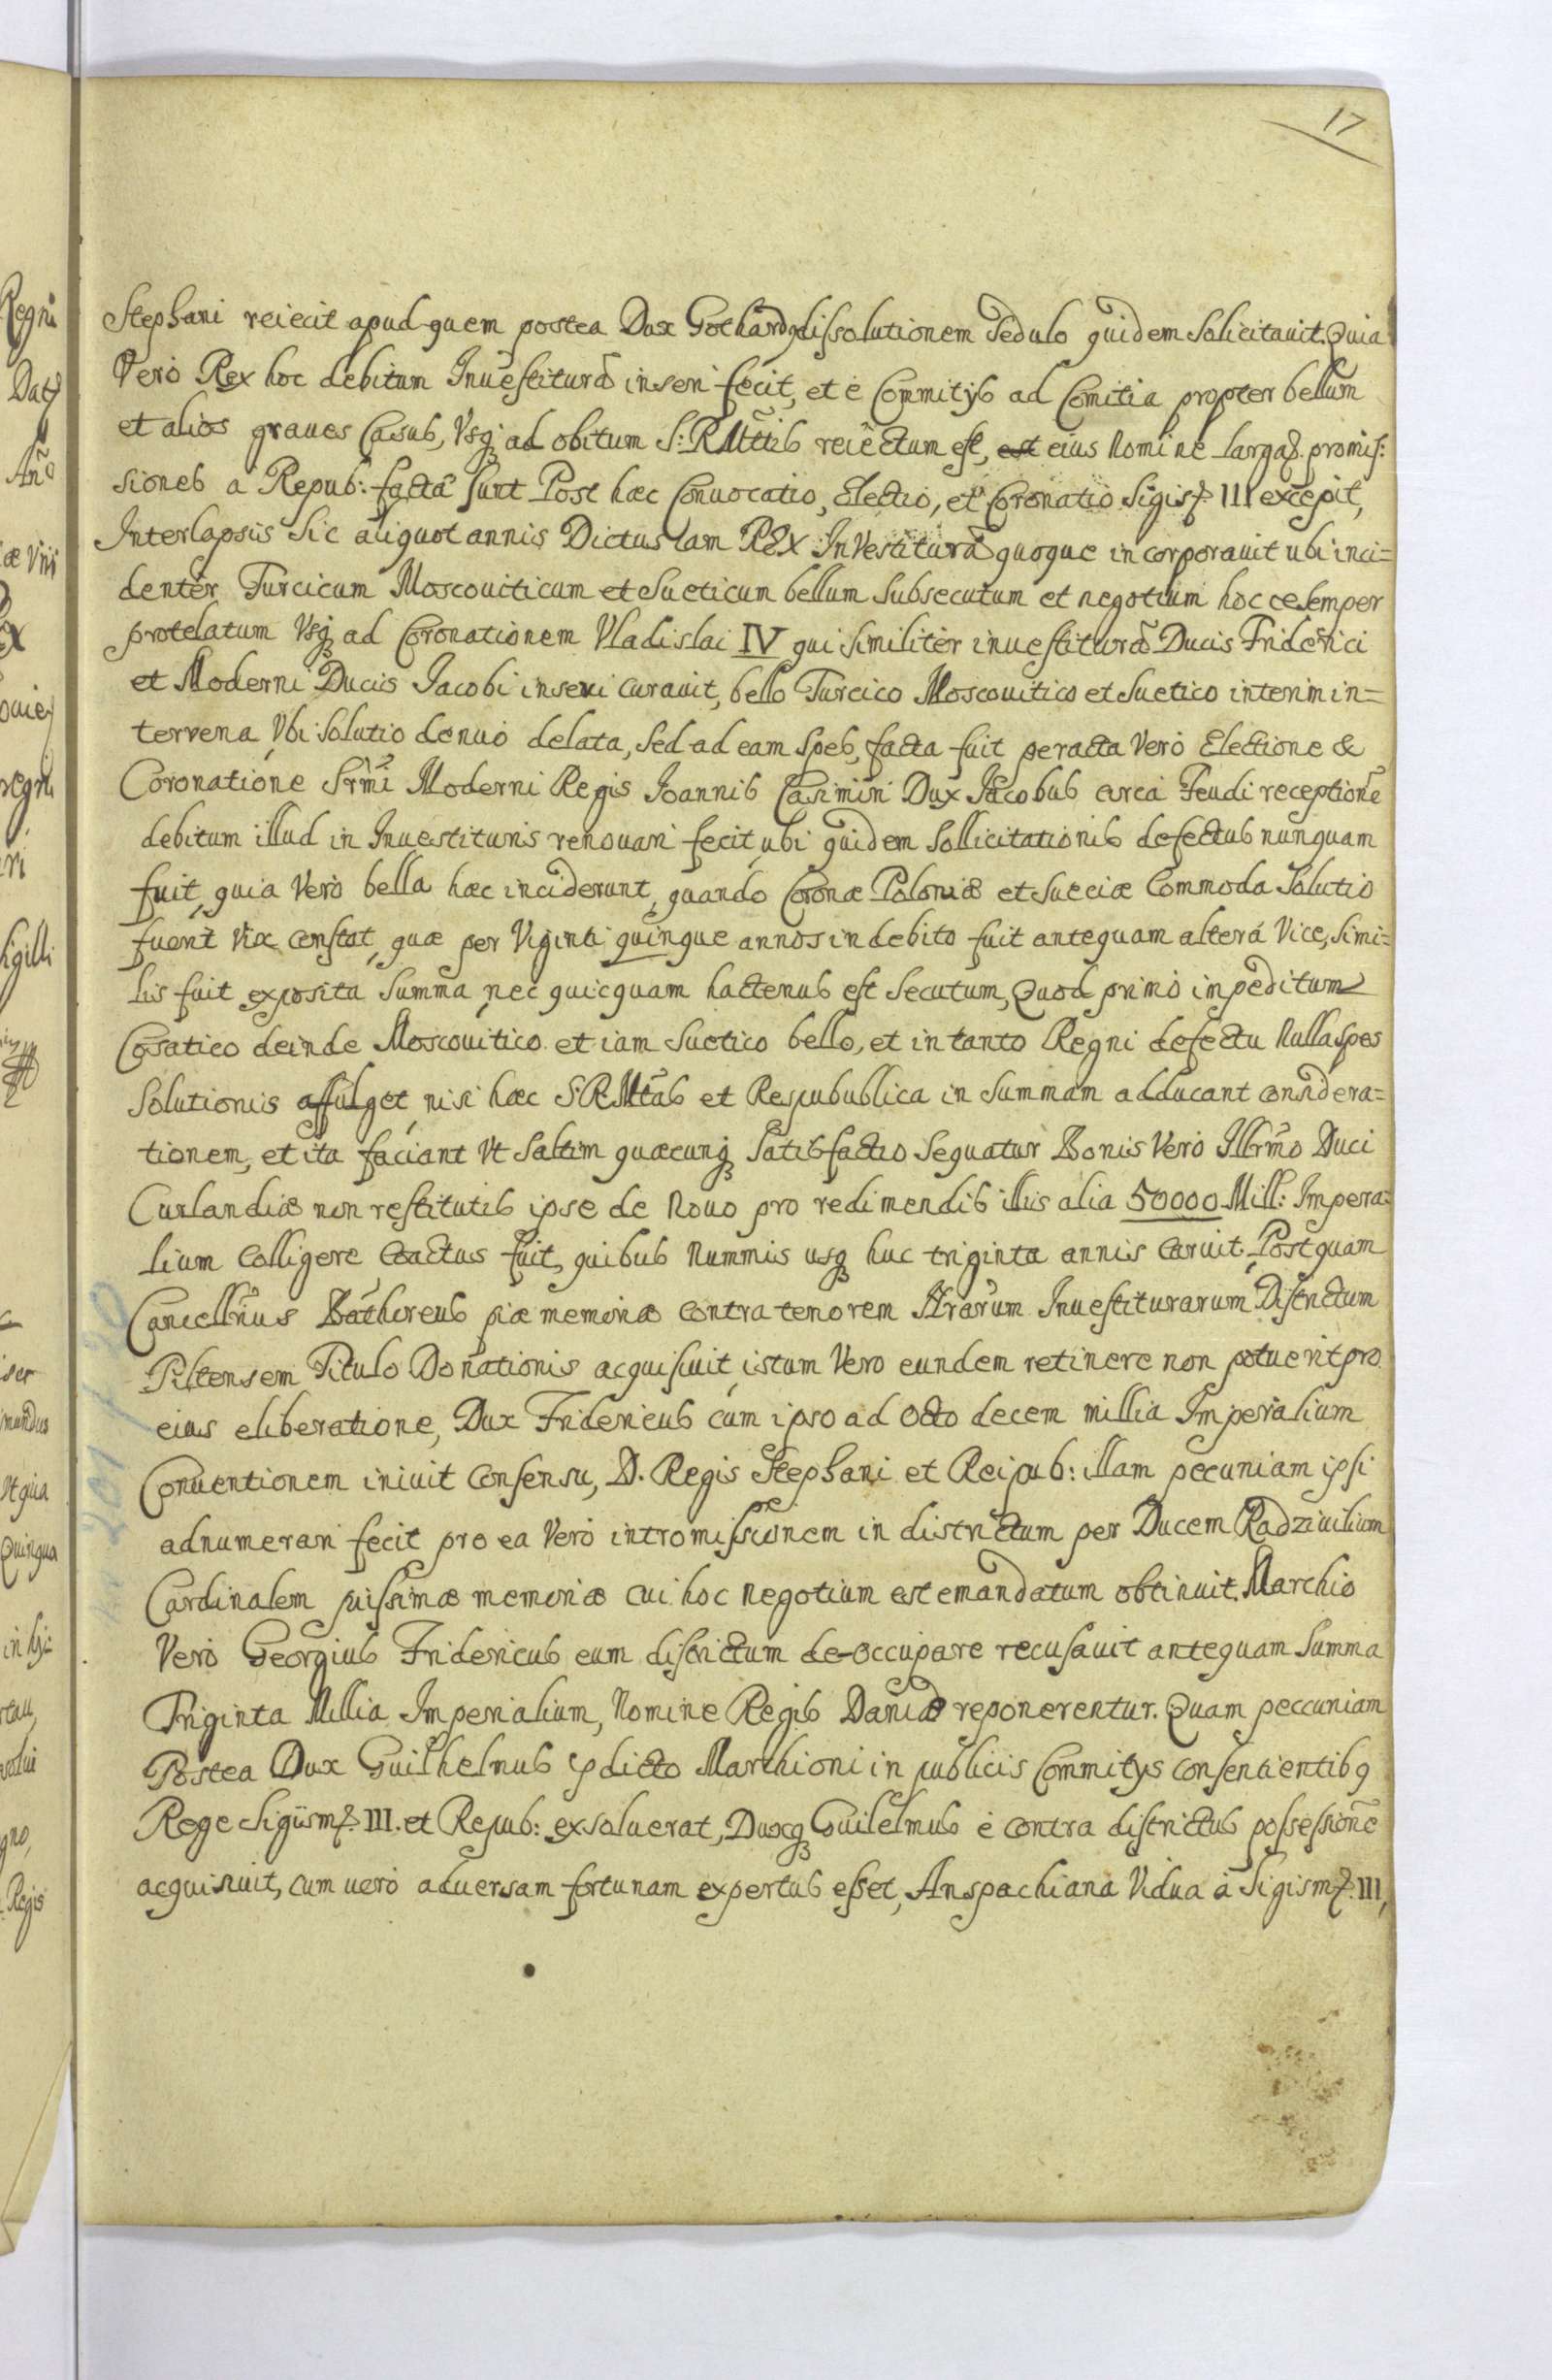 17
Stephani reiecit apud quem postea Dux Gothardq dissolutionem sedulo quidem solicitauit. Quia
Vero Rex hoc debitum Inuestiturã inseri fecit, et è Commitijs ad Comitia propter bellum
et alios graues Casus, Vsq ad obitum S: R Mttis reiectum est, eius Nomine largaq promis:
siones a Repub: facta sunt Post hæc Conuocatio, Electio, et Coronatio Sigis. III excepit,
Interlapsis Sic aliquot annis Dictus Iam REX InVestiturã quoque incorporauit ubi inci=
denter Turcicum Moscouiticum et Sueticum bellum Subsecutum et negotium hocce Semper
protelatum Vsq ad Coronationem Vladislai IV qui Similiter inuestiturã Ducis Friderici
et Moderni Ducis Jacobi inseri curauit, bello Turcico Moscouitico et Suetico interim in=
tervena Vbi Solutio denuo delata, Sed ad eam Spes, facta fuit peracta Vero Electione &
Coronatione Srmi Moderni Regis Joannis Casimiri Dux Jacobus circa Feudi receptionẽ
debitum illud in Inuestituris renouari fecit, ubi quidem Sollicitationis defectus nunquam
fuit, quia Vero bella hæc inciderunt, quando Coronæ Poloniæ et Sueciæ Commoda Solutio
fuerit Vix constat, quæ per Viginti quinque annos indebito fuit antequam altera Vice, Simi=
lis fuit exposita Summa, nec quicquam hactenus est Secutum, Quod primo inpeditum
Cosatico deinde Moscouitico et iam Suetico bello, et in tanto Regni defectu Nulla Spes
Solutionis affulget nisi hæc S: R Mtas et Respububblica in Summam adducant considera=
tionem, et ita faciant Vt Saltim quæcunq Satisfactio Sequatur Bonis Vero Illrmo Duci
Curlandiæ non restitutis ipse de Nouo pro redimendis illis alia 50000 Mill: Impera=
lium Colligere Coactus fuit, quibus Nummis usq huc triginta annis Caruit. Postquam
Cancellrius Bathoreus piæ memoriæ Contra tenorem Inuestiturarum Districtum
Piltensem Titulo Donationis acquisiuit, istum Vero eundem retinere non potuerit pro
eius eliberatione, Dux Fridericus cum ipso ad Octo decem millia Imperialium
Conuentionem iniuit Consensu, D. Regis Stephani et Reipub: illam pecuniam ipsi
adnumerari fecit pro ea Vero intromissionem in districtum per Ducem Radziuilium
Cardinalem piissimæ memoriæ Cui hoc Negotium est emandatum obtinuit. Marchio
Vero Georgius Fridericus eum districtum de-occupare recusauit antequam Summa
Triginta Millia Imperialium, Nomine Regis Daniæ reponerentur. Quam peccuniam
Postea Dux Guilhelmus pdicto Marchioni in publicis Commitys consentientibq
Rege Sigismq. III. et Repub: exsoluerat, Duxq Guilelmus è Contra districtus possessionẽ
acquisiuit, cum uero aduersam fortunam expertus esset, Anspachiana Vidua à Sigismq. III,